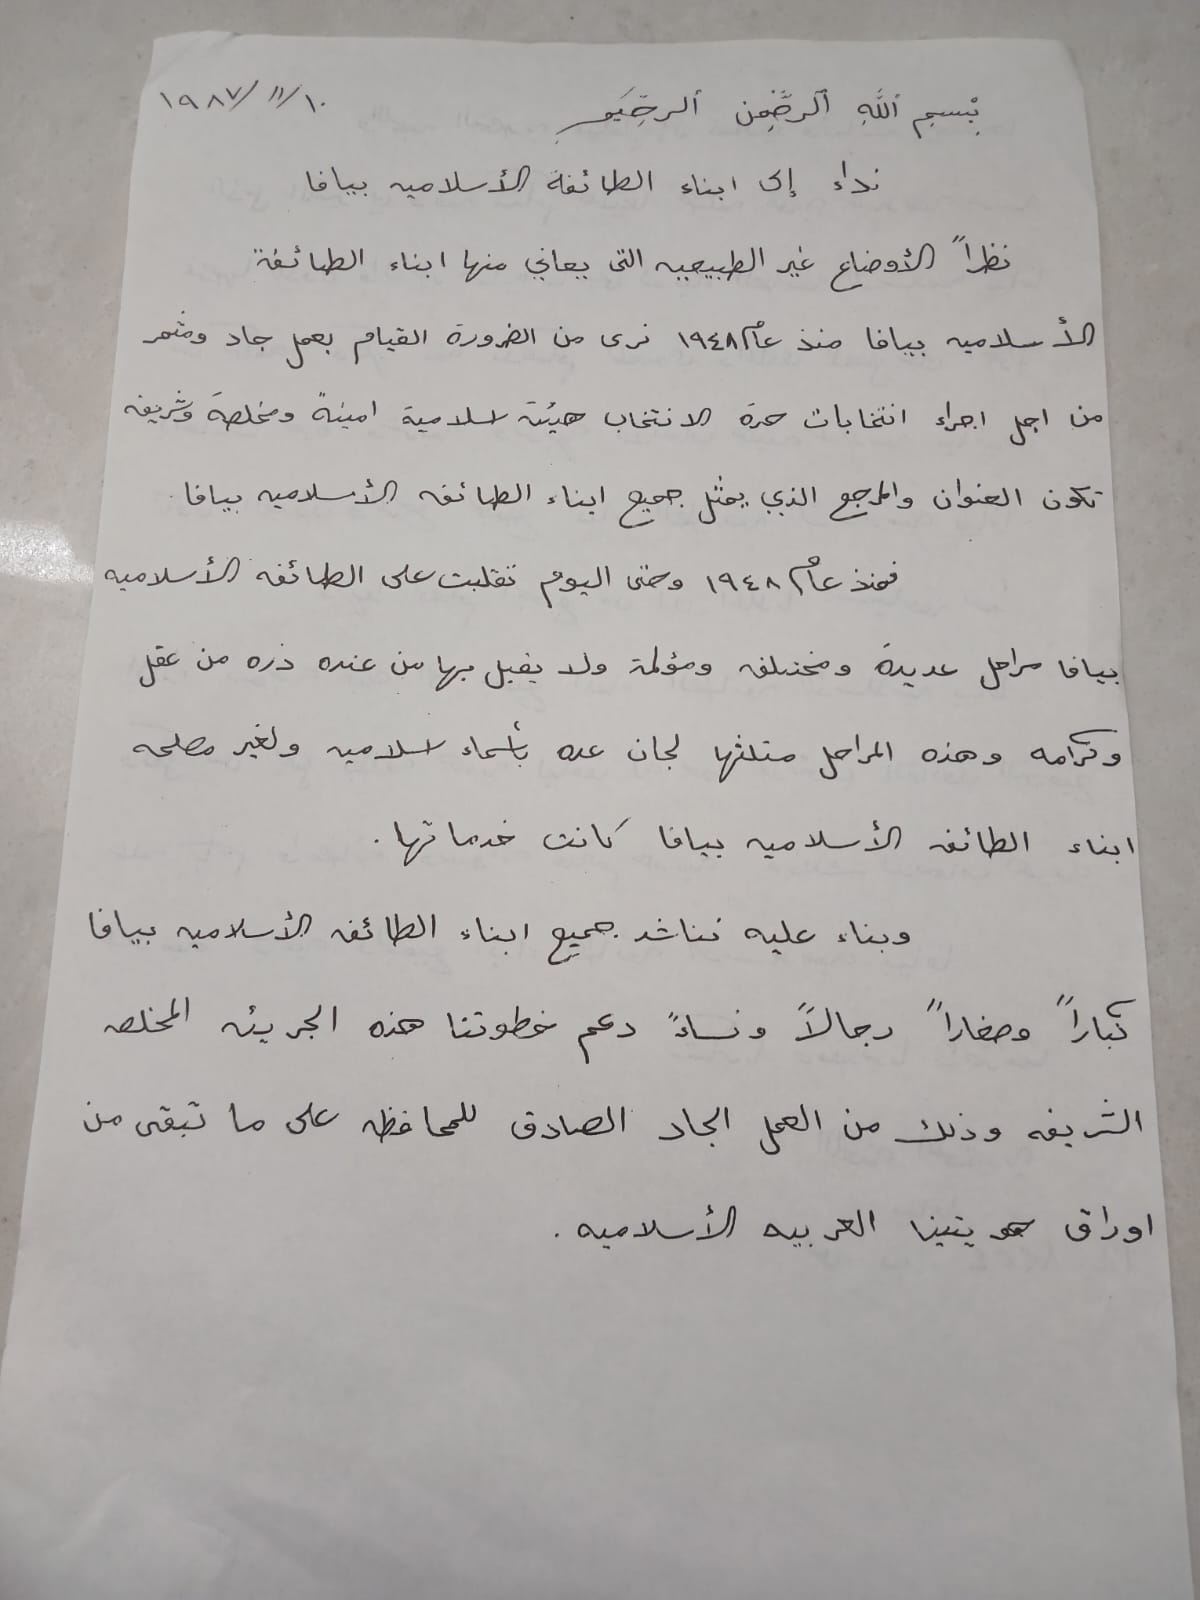 بِسمِ اللَّهِ الرَّحْمٰنِ الرحِّيمِ ١٩٨٧/١١/١٠
نداء إلى ابناء الطائفة الأسلاميه بيافا
نظراً الأوضاع غير الطبيعيه التى يعاني منها ابناء الطائفة
الأسلاميه بيافا منذ عام ١٩٤٨ نرى من الضرورة القيام بعمل جاد ومثمر
من اجل اجراء انتخابات حرة الانتخاب هيئة اسلامية امينة ومخلصة وشريفه
تكون العنوان والمرجع الذي يمثل جميع ابناء الطائفه الأسلاميه بيافا.
فمنذ عام ١٩٤٨ وحتى اليوم تقلبت على الطائفه الأسلاميه
بيافا مراحل عديدة ومختلفه ومؤلمة ولا يقبل بها من عنده ذره من عقل
وكرامه وهذه المراحل مثلثها لجان عده بأسماء اسلاميه ولغير مصلحه
ابناء الطائفه الأسلاميه بيافا كانت خدماتها.
وبناء عليه نناشد جميع ابناء الطائفه الأسلاميه بيافا
كباراً وصغاراً رجالاً ونساءً دعم خطوتنا هذه الجريئه المخلصه
الشريفه وذلك من العمل الجاد الصادق للمحافظه على ما تبقى من
اوراق هويتينا العربيه الأسلاميه.